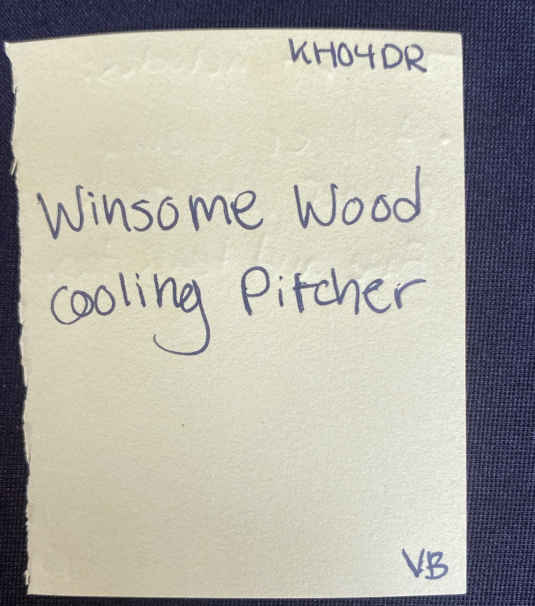 KH04DR
Winsome Wood
cooling Pitcher
VB